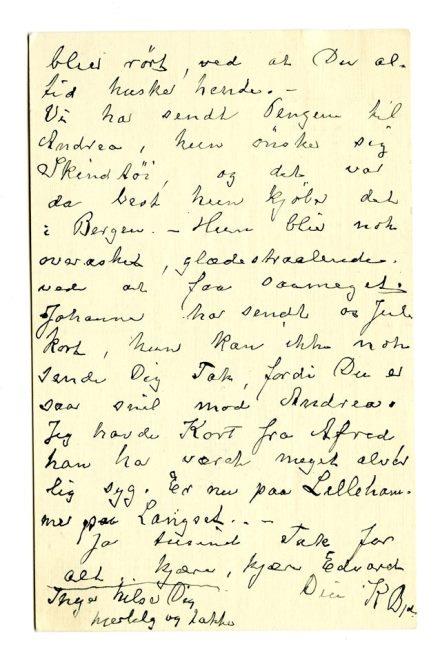 blir rört, ved at Du al-
tid husker hende. -
Vi har sendt Pengene til
Andrea, hun önsker sig
Skindtöi, og det var
da best hun kjöber det
i Bergen. - Hun blir nok
overasket, glædestraalende.
ved at faa saameget.
Johanne har sendt os Jule
kort, hun kan ikke nok
sende Dig Tak, fordi Du er
saa snil mod Andrea.
Jeg havde Kort fra Alfred
han har været meget alvor
lig syg. Er nu paa Lilleham-
mer paa Langset.. -
Ja tusind Tak for
alt.. kjære, kjære Edvard
Din K Bj.
Inger hilser Dig
hjertelig og takker